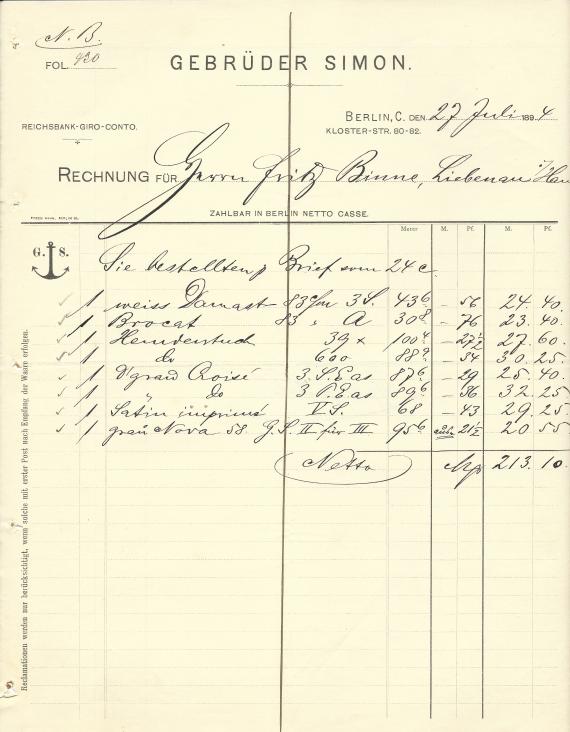 N. B.
FOL. 420
GEBRÜDER SIMON.
REICHSBANK-GIRO-CONTO.
BERLIN, C. DEN 27 Juli 1894
KLOSTER-STR. 80-82.
RECHNUNG FÜR Herrn Fritz Binne, Liebenau i/Han
ZAHLBAR IN BERLIN NETTO CASSE.
Meter M. Pf. M. Pf.
G. S.
Sie bestellten p Brief vom 24 c.
1 weiss Damast 83 cm 3 S. 43 6 – 56 24. 40.
1 Brocat 83 " A 30 8 – 76 23. 40.
1 Hemdentuch 39 x 100 4 – 27 1/2 27. 60
1 do 600 88 9 – 34 30. 25.
1 grau Croisé 3. S. E as 87 6 – 29 25. 40
1 " do 3 P. E as 89 6 – 36 32. 25
1 Satin imprimé V S. 68 – 43 29. 25
1 grau Nova 58. G. S. II für III 95 6 21 1/2 20 55
Netto Mk 213. 10.
Reclamationen werden nur berücksichtigt, wenn solche mit erster Post nach Empfang der Waare erfolgen.